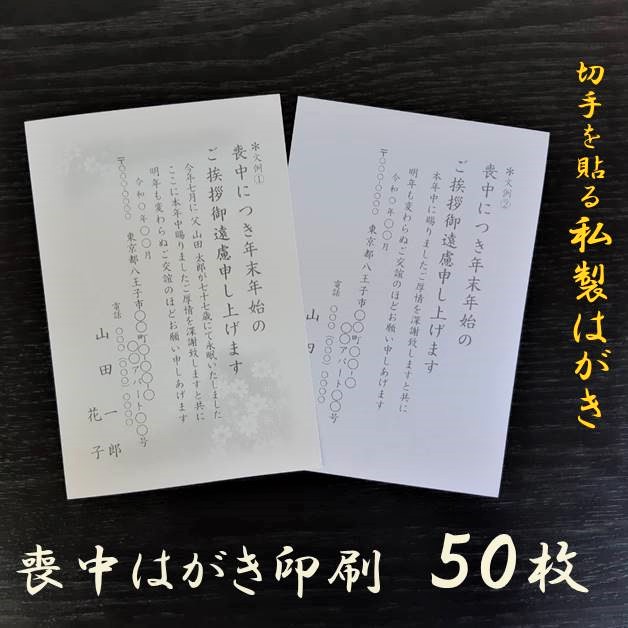 切手を貼る私製はがき
＊文例①
喪中につき年末年始の
ご挨拶御遠慮申し上げます
今年七月に父 山田 太郎が七十七歳にて永眠いたしました
ここに本年中賜りましたご厚情を深謝致しますと共に
明年も変わらぬご交誼のほどお願い申しあげます
令和〇年〇〇月
〒〇〇〇-〇〇〇〇 東京都八王子市〇〇町〇-〇-〇
〇〇アパート〇〇号
電話 〇〇〇(〇〇〇)〇〇〇〇
山田 一郎
花子
＊文例②
喪中につき年末年始の
ご挨拶御遠慮申し上げます
本年中に賜りましたご厚情を深謝致しますと共に
明年も変わらぬご交誼のほどお願い申しあげます
令和〇年〇〇月
東京都八王子市〇〇町〇-〇-〇
〇〇アパート〇〇号
電話 〇〇〇(〇〇〇)〇〇〇〇
山
喪中はがき印刷 50枚